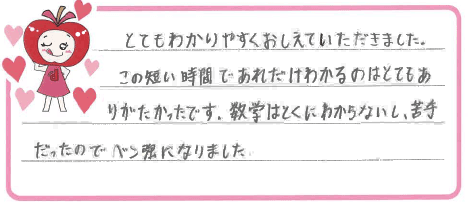 とてもわかりやすくおしえていただきました。
この短い時間であれだけわかるのはとてもあ
りがたかったです。数学はとくにわからないし、苦手
だったのでベン強になりました